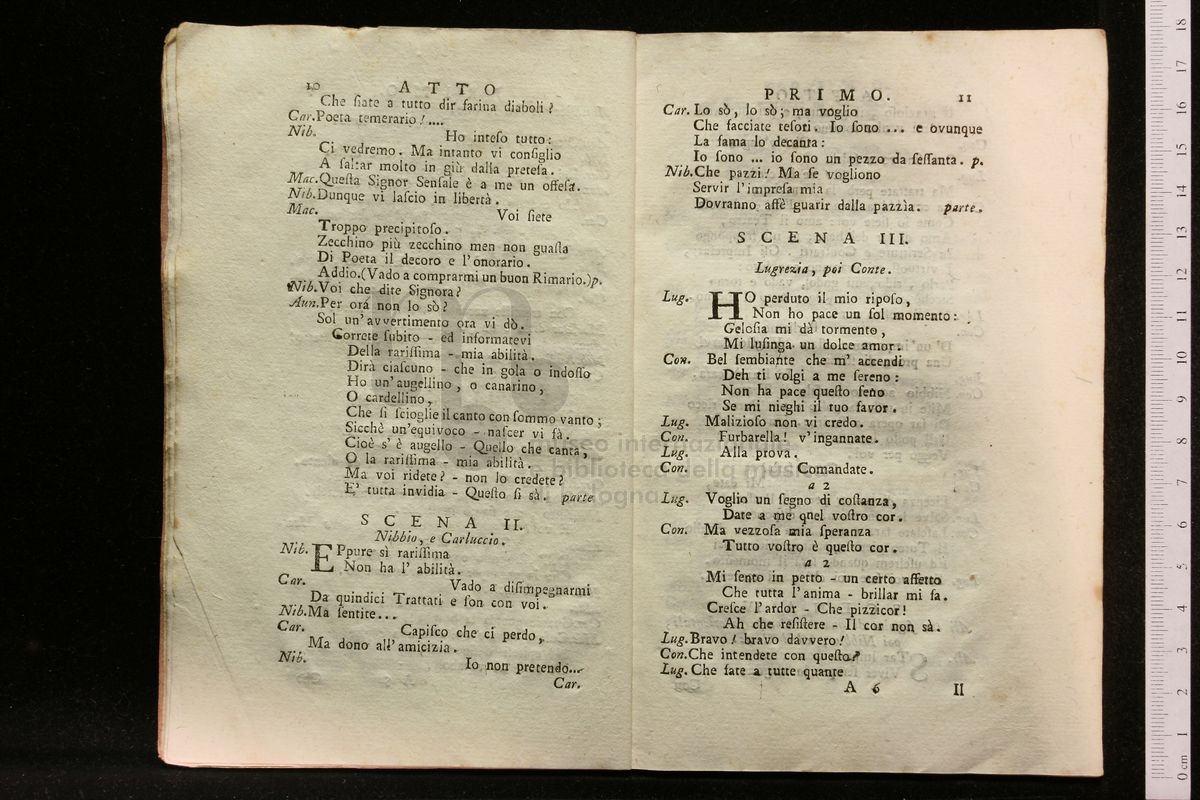 10 ATTO
Che ſiate a tutto dir farina diaboli?
Car. Poeta temerario!....
Nib. Ho inteſo tutto:
Ci vedremo. Ma intanto vi conſiglio
A ſaltar molto in giù dalla preteſa.
Mac. Queſta Signor Senſale è a me un offeſa.
Nib. Dunque vi laſcio in libertà.
Mac. Voi ſiete
Troppo precipitoſo.
Zecchino più zecchino men non guaſta
Di Poeta il decoro e l'onorario.
Addio. (Vado a comprarmi un buon Rimario.) p.
Nib. Voi che dite Signora?
Aun. Per orá non lo sò?
Sol un' avvertimento ora vi dò.
Correte ſubito - ed informatevi
Della rariſſima - mia abilità.
Dirà ciaſcuno - che in gola o indoſſo
Ho un' augellino, o canarino,
O cardellino,
Che ſi ſcioglie il canto con ſommo vanto;
Sicchè un'equivoco - naſcer vi fà.
Cioè s' è augello - Quello che canta,
O la rariſſima - mia abilità.
Ma voi ridete? - non lo credete?
E' tutta invidia - Queſto ſi sà. parte
SCENA II.
Nibbio, e Carluccio.
Nib. EPpure sì rariſſima
Non ha l' abilità.
Car. Vado a diſimpegnarmi
Da quindici Trattati e ſon con voi.
Nib. Ma ſentite...
Car. Capiſco che ci perdo,
Ma dono all' amicizia.
Nib. Io non pretendo...
Car.
PRIMO. 11
Car. Lo sò, lo sò; ma voglio
Che facciate teſori. Io ſono ... e ovunque
La fama lo decanta:
Io ſono ... io ſono un pezzo da ſeſſanta. p.
Nib. Che pazzi! Ma ſe vogliono
Servir l'impreſa mia
Dovranno affè guarir dalla pazzìa. parte.
SCENA III.
Lugrezia, poi Conte.
Lug. HO perduto il mio ripoſo,
Non ho pace un ſol momento:
Geloſia mi dà tormento,
Mi luſinga un dolce amor.
Con. Bel ſembiante che m' accendi
Deh ti volgi a me ſereno:
Non ha pace queſto ſeno
Se mi nieghi il tuo favor.
Lug. Malizioſo non vi credo.
Con. Furbarella! v' ingannate.
Lug. Alla prova.
Con. Comandate.
a 2
Lug. Voglio un ſegno di coſtanza,
Date a me quel voſtro cor.
Con. Ma vezzoſa mia ſperanza
Tutto voſtro è queſto cor.
a 2
Mi ſento in petto - un certo affetto
Che tutta l'anima - brillar mi fa.
Creſce l'ardor - Che pizzicor!
Ah che reſiſtere - Il cor non sà.
Lug. Bravo! bravo davvero!
Con. Che intendete con queſto?
Lug. Che fate a tutte quante
A 6 II
museo internazionale
e biblioteca della musica